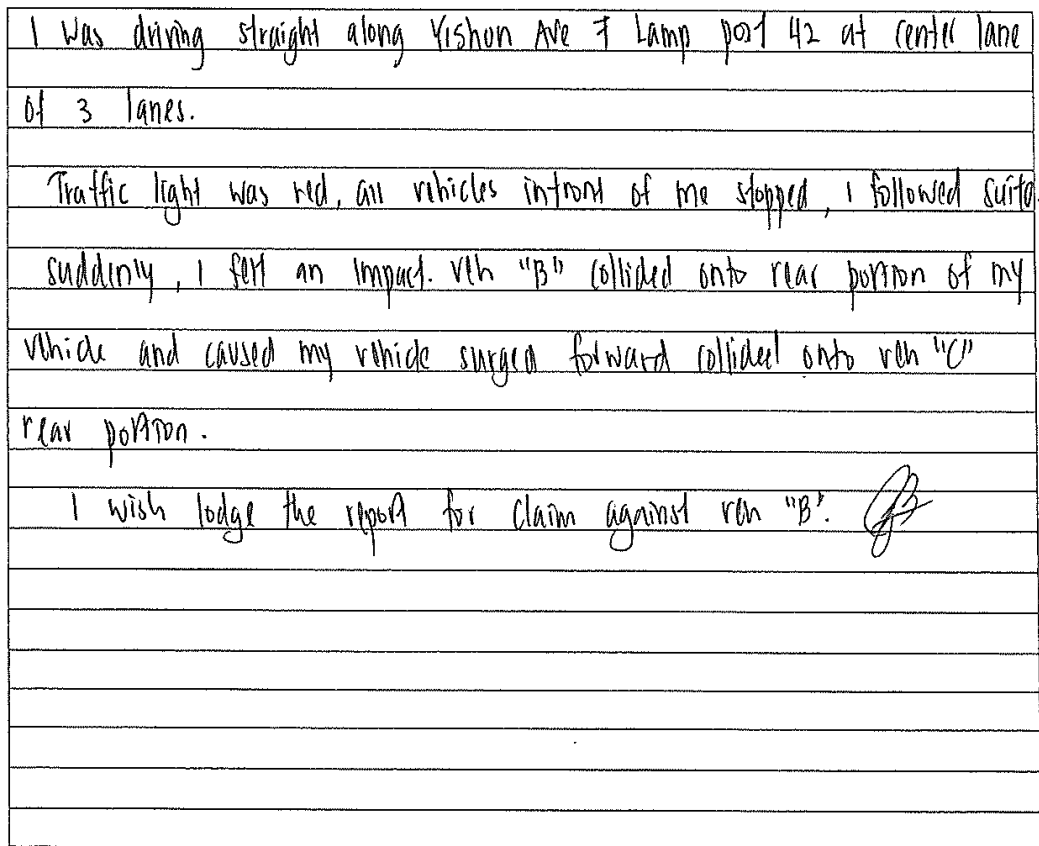 I was driving straight along Yishun Ave 7 Lamp post 42 at center lane
of 3 lanes.
Traffic light was red, all vehicles infront of me stopped, I followed
suddenly, I felt an impact. veh "B" collided onto rear portion of my
vehicle and caused my vehicle surged forward collided onto veh "C"
rear portion.
I wish lodge the report for claim against veh "B".